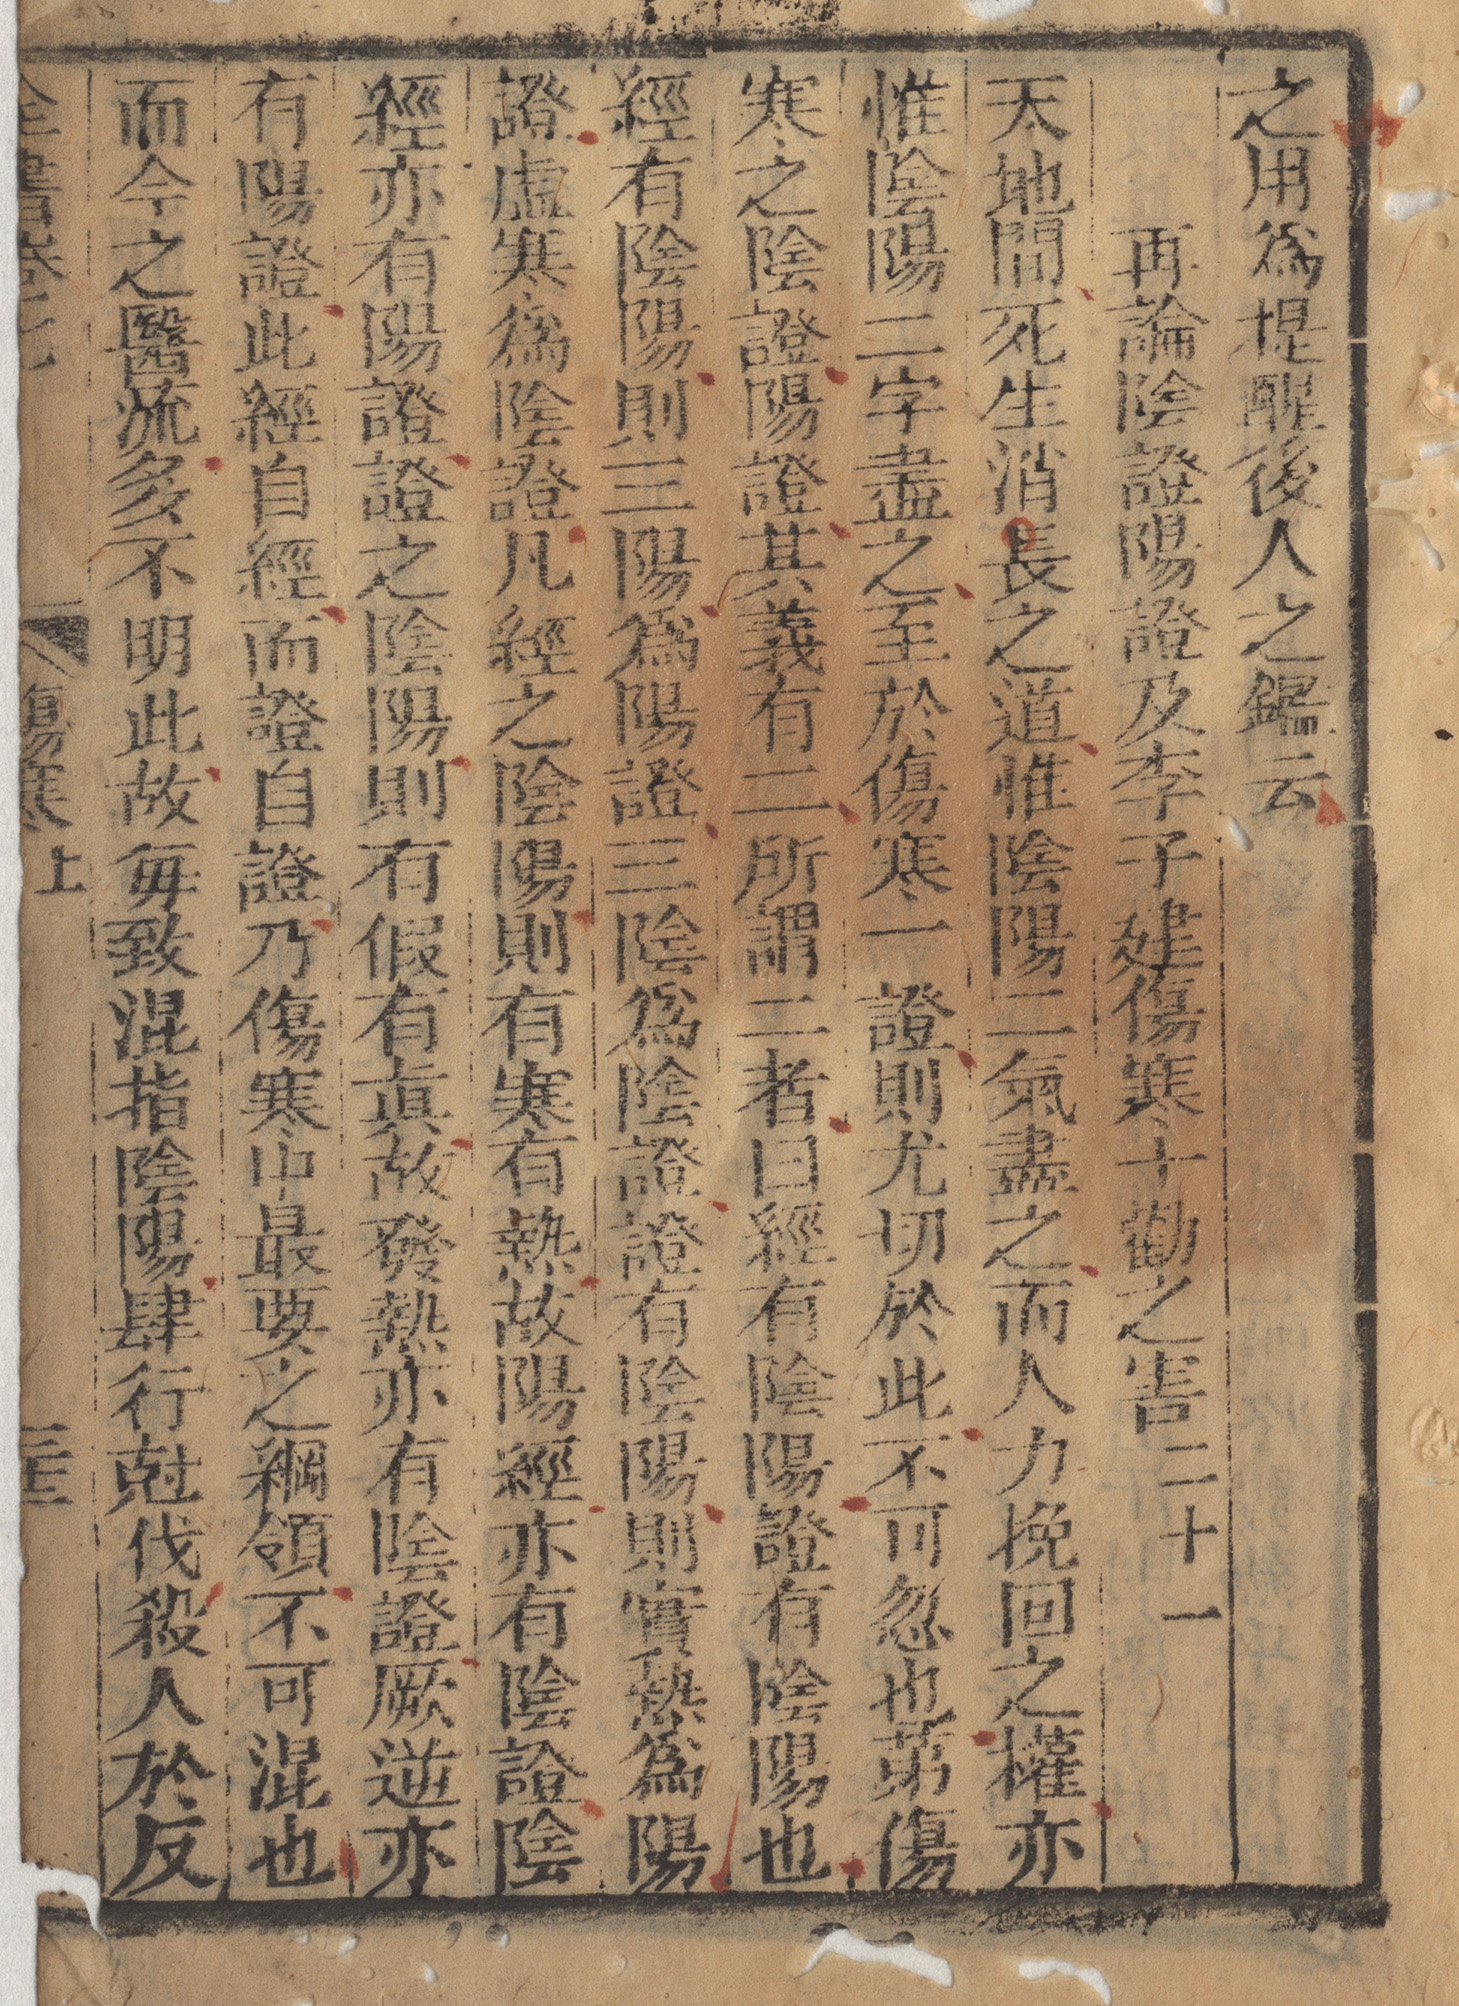 之用爲提醒後人之鑑云
再論陰證陽證及李子建傷寒十勸之害二十一
天地間死生消長之道惟陰陽二氣盡之而人力挽回之權亦
惟陰陽二字盡之至於傷寒一證則尤切於此不可忽也第傷
寒之陰證陽證其義有二所謂二者曰經有陰陽證有陰陽也
經有陰陽則三陽爲陽證三陰爲陰證證有陰陽則實熱爲陽
證虛寒爲陰證凡經之陰陽則有寒有熱故陽經亦有陰證陰
經亦有陽證證之陰陽則有假有眞故發熱亦有陰證厥逆亦
有陽證此經自經而證自證乃傷寒中最要之綱領不可混也
而今之醫流多不明此故每致混指陰陽肆行尅伐殺人於反
全書卷之七 傷寒上 三十三